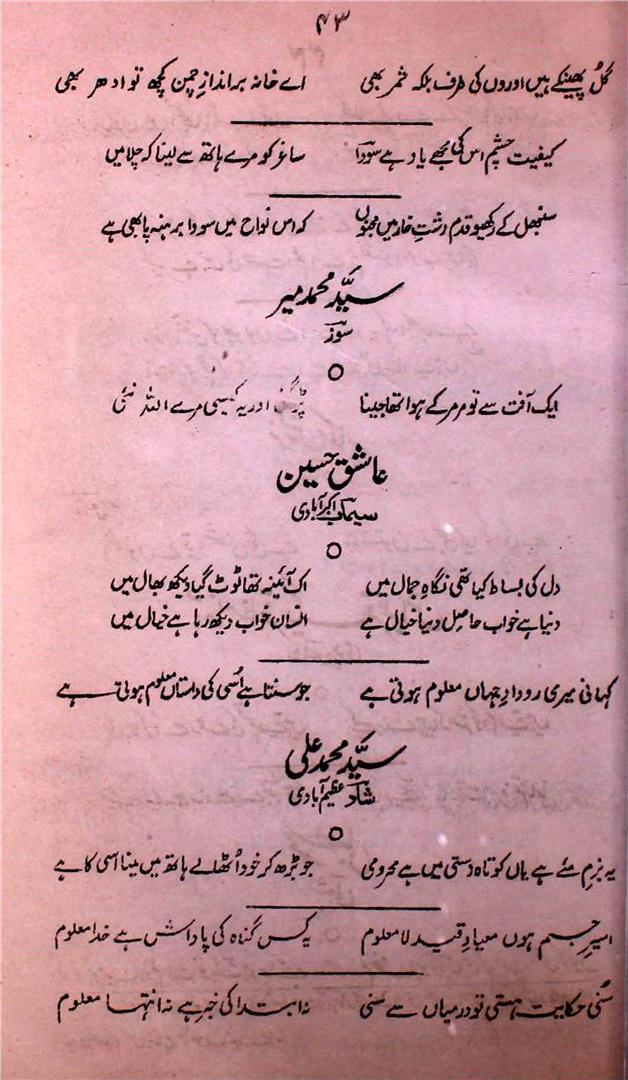 ۴۳
گل پھینکے ہیں اوروں کی طرف بلکہ ثمر بھی اے خانہ برانداز چمن کچھ تو ادھر بھی
کیفیت چشم اس کی مجھے یاد ہے سودا ساغر کو مرے ہاتھ سے لینا کہ چلا میں
سنبھل کے رکھیو قدم دشتِ خار میں مجنوں کہ اس نواح میں سودا برہنہ پا بھی ہے
سیّد محمد میر
سوز
ایک آفت سے تو مر مر کے ہوا تھا جینا پڑ گئی اور یہ کیسی مرے اللہ نئی
عاشق حسین
سیماب اکبر آبادی
دل کی بساط کیا تھی نگاہِ جمال میں اک آئینہ تھا ٹوٹ گیا دیکھ بھال میں
دنیا ہے خواب حاصلِ دنیا خیال ہے انسان خواب دیکھ رہا ہے خیال میں
کہانی میری رودادِ جہاں معلوم ہوتی ہے جو سنتا ہے اُسی کی داستاں معلوم ہوتی ہے
سیّد محمد علی
شاد عظیم آبادی
یہ بزمِ مئے ہے یاں کوتاہ دستی میں ہے محرومی جو بڑھ کر خود اُٹھا لے ہاتھ میں مینا اسی کا ہے
اسیرِ جسم ہوں میعادِ قید لامعلوم یہ کس گناہ کی پاداش ہے خدا معلوم
سُنی حکایتِ ہستی تو درمیاں سے سنی نہ ابتدا کی خبر ہے نہ انتہا معلوم